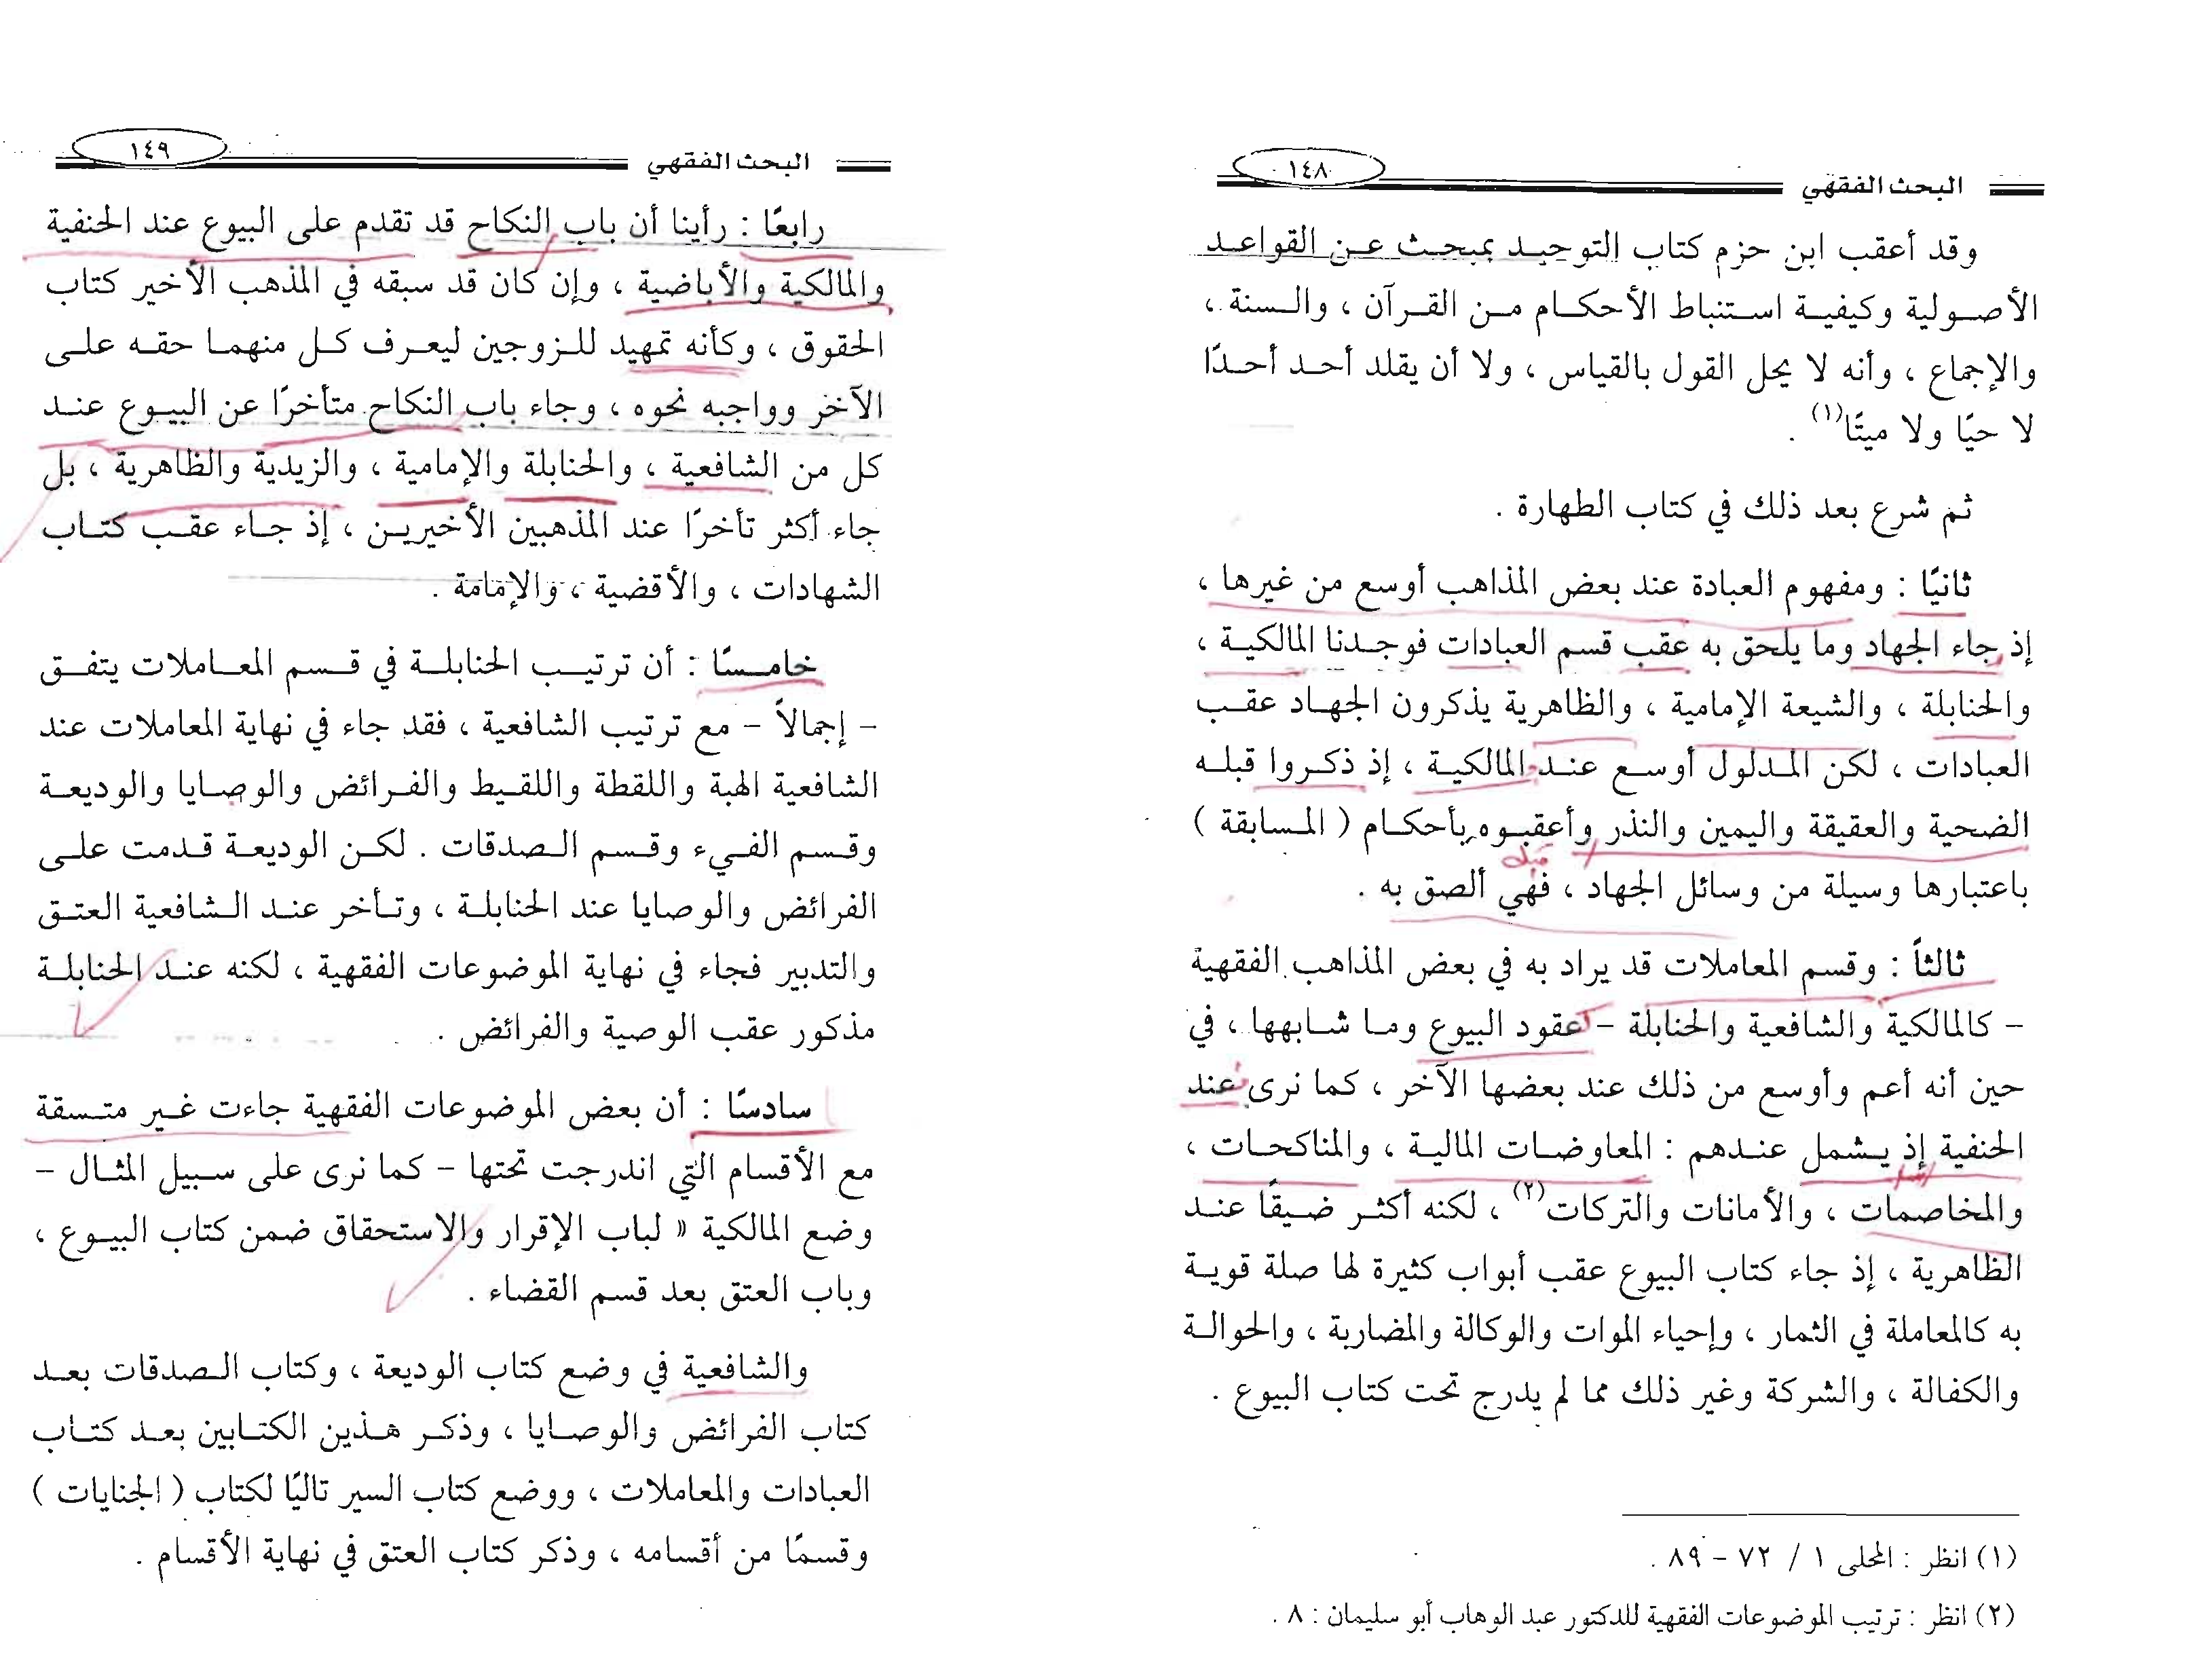 البحث الفقهي
١٤٨
وقد أعقب ابن حزم كتاب التوحيد بمبحث عن القواعد
الأصولية وكيفية استنباط الأحكام من القرآن ، والسنة ،
والإجماع ، وأنه لا يحل القول بالقياس ، ولا أن يقلد أحد أحدًا
لا حيًا ولا ميتًا(١) .
ثم شرع بعد ذلك في كتاب الطهارة .
ثانيًا : ومفهوم العبادة عند بعض المذاهب أوسع من غيرها ،
إذ جاء الجهاد وما يلحق به عقب قسم العبادات فوجدنا المالكية ،
والحنابلة ، والشيعة الإمامية ، والظاهرية يذكرون الجهاد عقب
العبادات ، لكن المدلول أوسع عند المالكية ، إذ ذكروا قبله
الضحية والعقيقة واليمين والنذر وأعقبوه بأحكام ( المسابقة )
باعتبارها وسيلة من وسائل الجهاد ، فهي ألصق به .
ثالثاً : وقسم المعاملات قد يراد به في بعض المذاهب الفقهية
– كالمالكية والشافعية والحنابلة – عقود البيوع وما شابهها ، في
حين أنه أعم وأوسع من ذلك عند بعضها الآخر ، كما نرى عند
الحنفية إذ يشمل عندهم : المعاوضات المالية ، والمناكحات ،
والمخاصمات ، والأمانات والتركات(٢) ، لكنه أكثر ضيقًا عند
الظاهرية ، إذ جاء كتاب البيوع عقب أبواب كثيرة لها صلة قوية
به كالمعاملة في الثمار ، وإحياء الموات والوكالة والمضاربة ، والحوالة
والكفالة ، والشركة وغير ذلك مما لم يدرج تحت كتاب البيوع .
(١) انظر : المحلى ١ / ٧٢ – ٨٩ .
(٢) انظر : ترتيب الموضوعات الفقهية للدكتور عبد الوهاب أبو سليمان : ٨ .
البحث الفقهي
١٤٩
رابعًا : رأينا أن باب النكاح قد تقدم على البيوع عند الحنفية
والمالكية والأباضية ، وإن كان قد سبقه في المذهب الأخير كتاب
الحقوق ، وكأنه تمهيد للزوجين ليعرف كل منهما حقه على
الآخر وواجبه نحوه ، وجاء باب النكاح متأخرًا عن البيوع عند
كل من الشافعية ، والحنابلة والإمامية ، والزيدية والظاهرية ، بل
جاء أكثر تأخرًا عند المذهبين الأخيرين ، إذ جاء عقب كتاب
الشهادات ، والأقضية ، والإمامة .
خامسًا : أن ترتيب الحنابلة في قسم المعاملات يتفق
– إجمالاً – مع ترتيب الشافعية ، فقد جاء في نهاية المعاملات عند
الشافعية الهبة واللقطة واللقيط والفرائض والوصايا والوديعة
وقسم الفيء وقسم الصدقات . لكن الوديعة قدمت على
الفرائض والوصايا عند الحنابلة ، وتأخر عند الشافعية العتق
والتدبير فجاء في نهاية الموضوعات الفقهية ، لكنه عند الحنابلة
مذكور عقب الوصية والفرائض .
سادسًا : أن بعض الموضوعات الفقهية جاءت غير متسقة
مع الأقسام التي اندرجت تحتها – كما نرى على سبيل المثال –
وضع المالكية « لباب الإقرار والاستحقاق ضمن كتاب البيوع ،
وباب العتق بعد قسم القضاء .
والشافعية في وضع كتاب الوديعة ، وكتاب الصدقات بعد
كتاب الفرائض والوصايا ، وذكر هذين الكتابين بعد كتاب
العبادات والمعاملات ، ووضع كتاب السير تاليًا لكتاب ( الجنايات )
وقسمًا من أقسامه ، وذكر كتاب العتق في نهاية الأقسام .